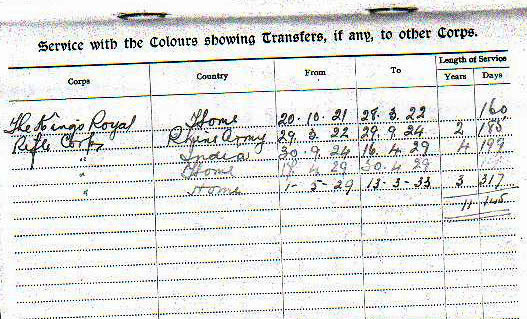 Service with the Colours showing Transfers, if any, to other Corps.
Length of Service
Corps Country From To Years Days
The King's Royal Home 20-10-21 28.3.22 160
Rifle Corps Rhine Army 29.3.22 29.9.24 2 185
" India 30.9.24 16.4.29 4 199
" Home 17.4.29 30.4.29
" Home 1-5-29 13-3-33 3 317
11 145